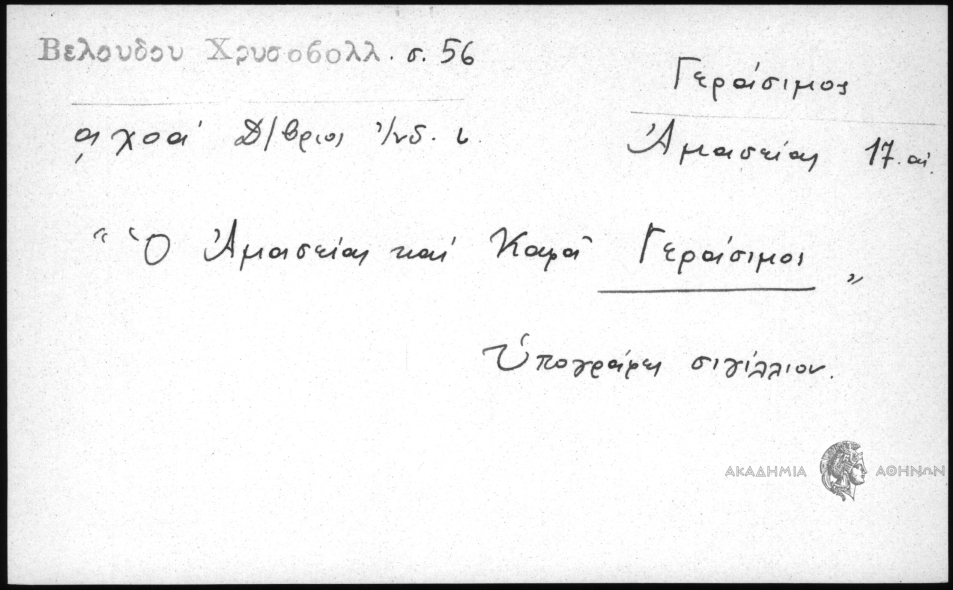 Βελουδου Χρυσοβολλ. σ. 56
Γεράσιμος
͵αχοα΄ Δ/βριος Ἰ/νδ. ι.
Ἀμασείας 17. αἰ.
“ Ὁ Ἀμασείας καὶ Καρᾶ Γεράσιμος „
Ὑπογράφει σιγίλλιον.
ΑΚΑΔΗΜΙΑ ΑΘΗΝΩΝ